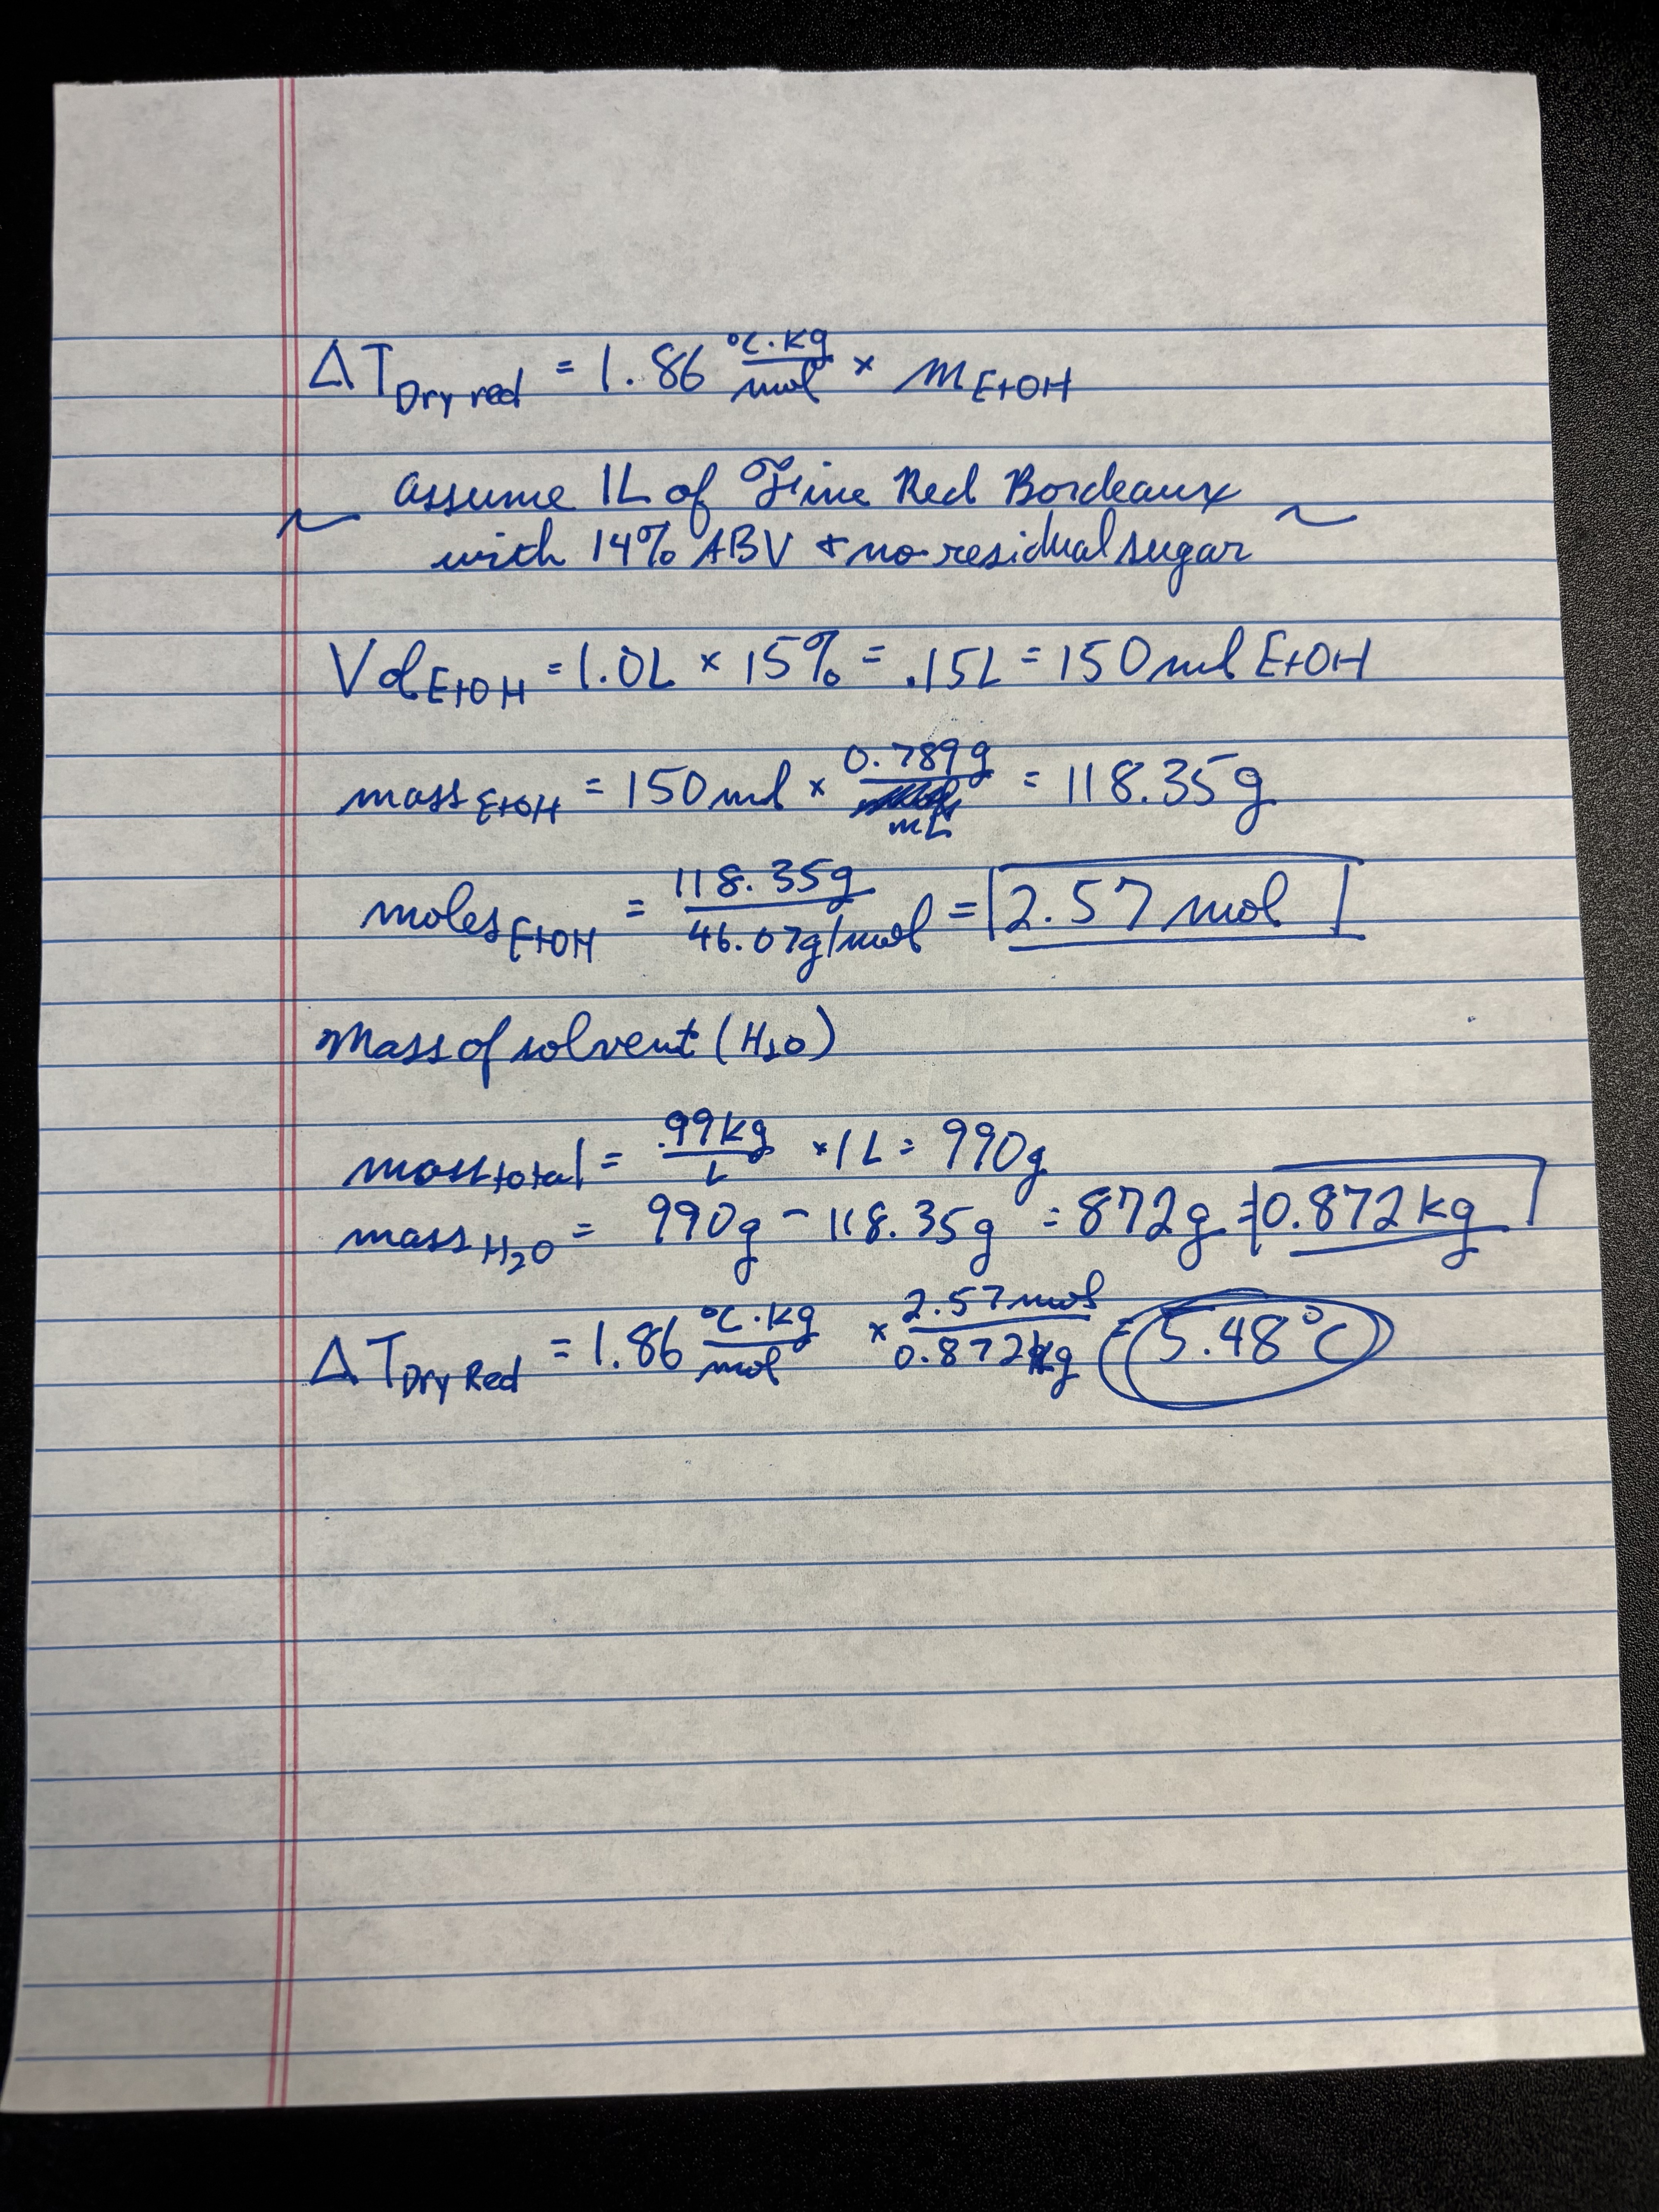 ΔT Dry red = 1.86 °C·kg/mol × m EtOH
~ assume 1L of Fine Red Bordeaux ~
with 14% ABV & no residual sugar
Vol EtOH = 1.0L × 15% = .15L = 150 ml EtOH
mass EtOH = 150 ml × 0.789g/mL = 118.35g
moles EtOH = 118.35g/46.07g/mol = 2.57 mol
Mass of solvent (H2O)
mass total = .99kg/L × 1L = 990g
mass H2O = 990g - 118.35g = 872g = 0.872 kg
ΔT Dry Red = 1.86 °C·kg/mol × 2.57 mol/0.872kg = 5.48°C